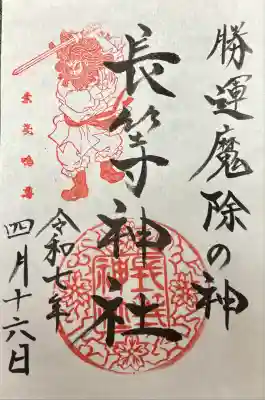 勝運魔除の神
長等神社
令和七年
四月十六日